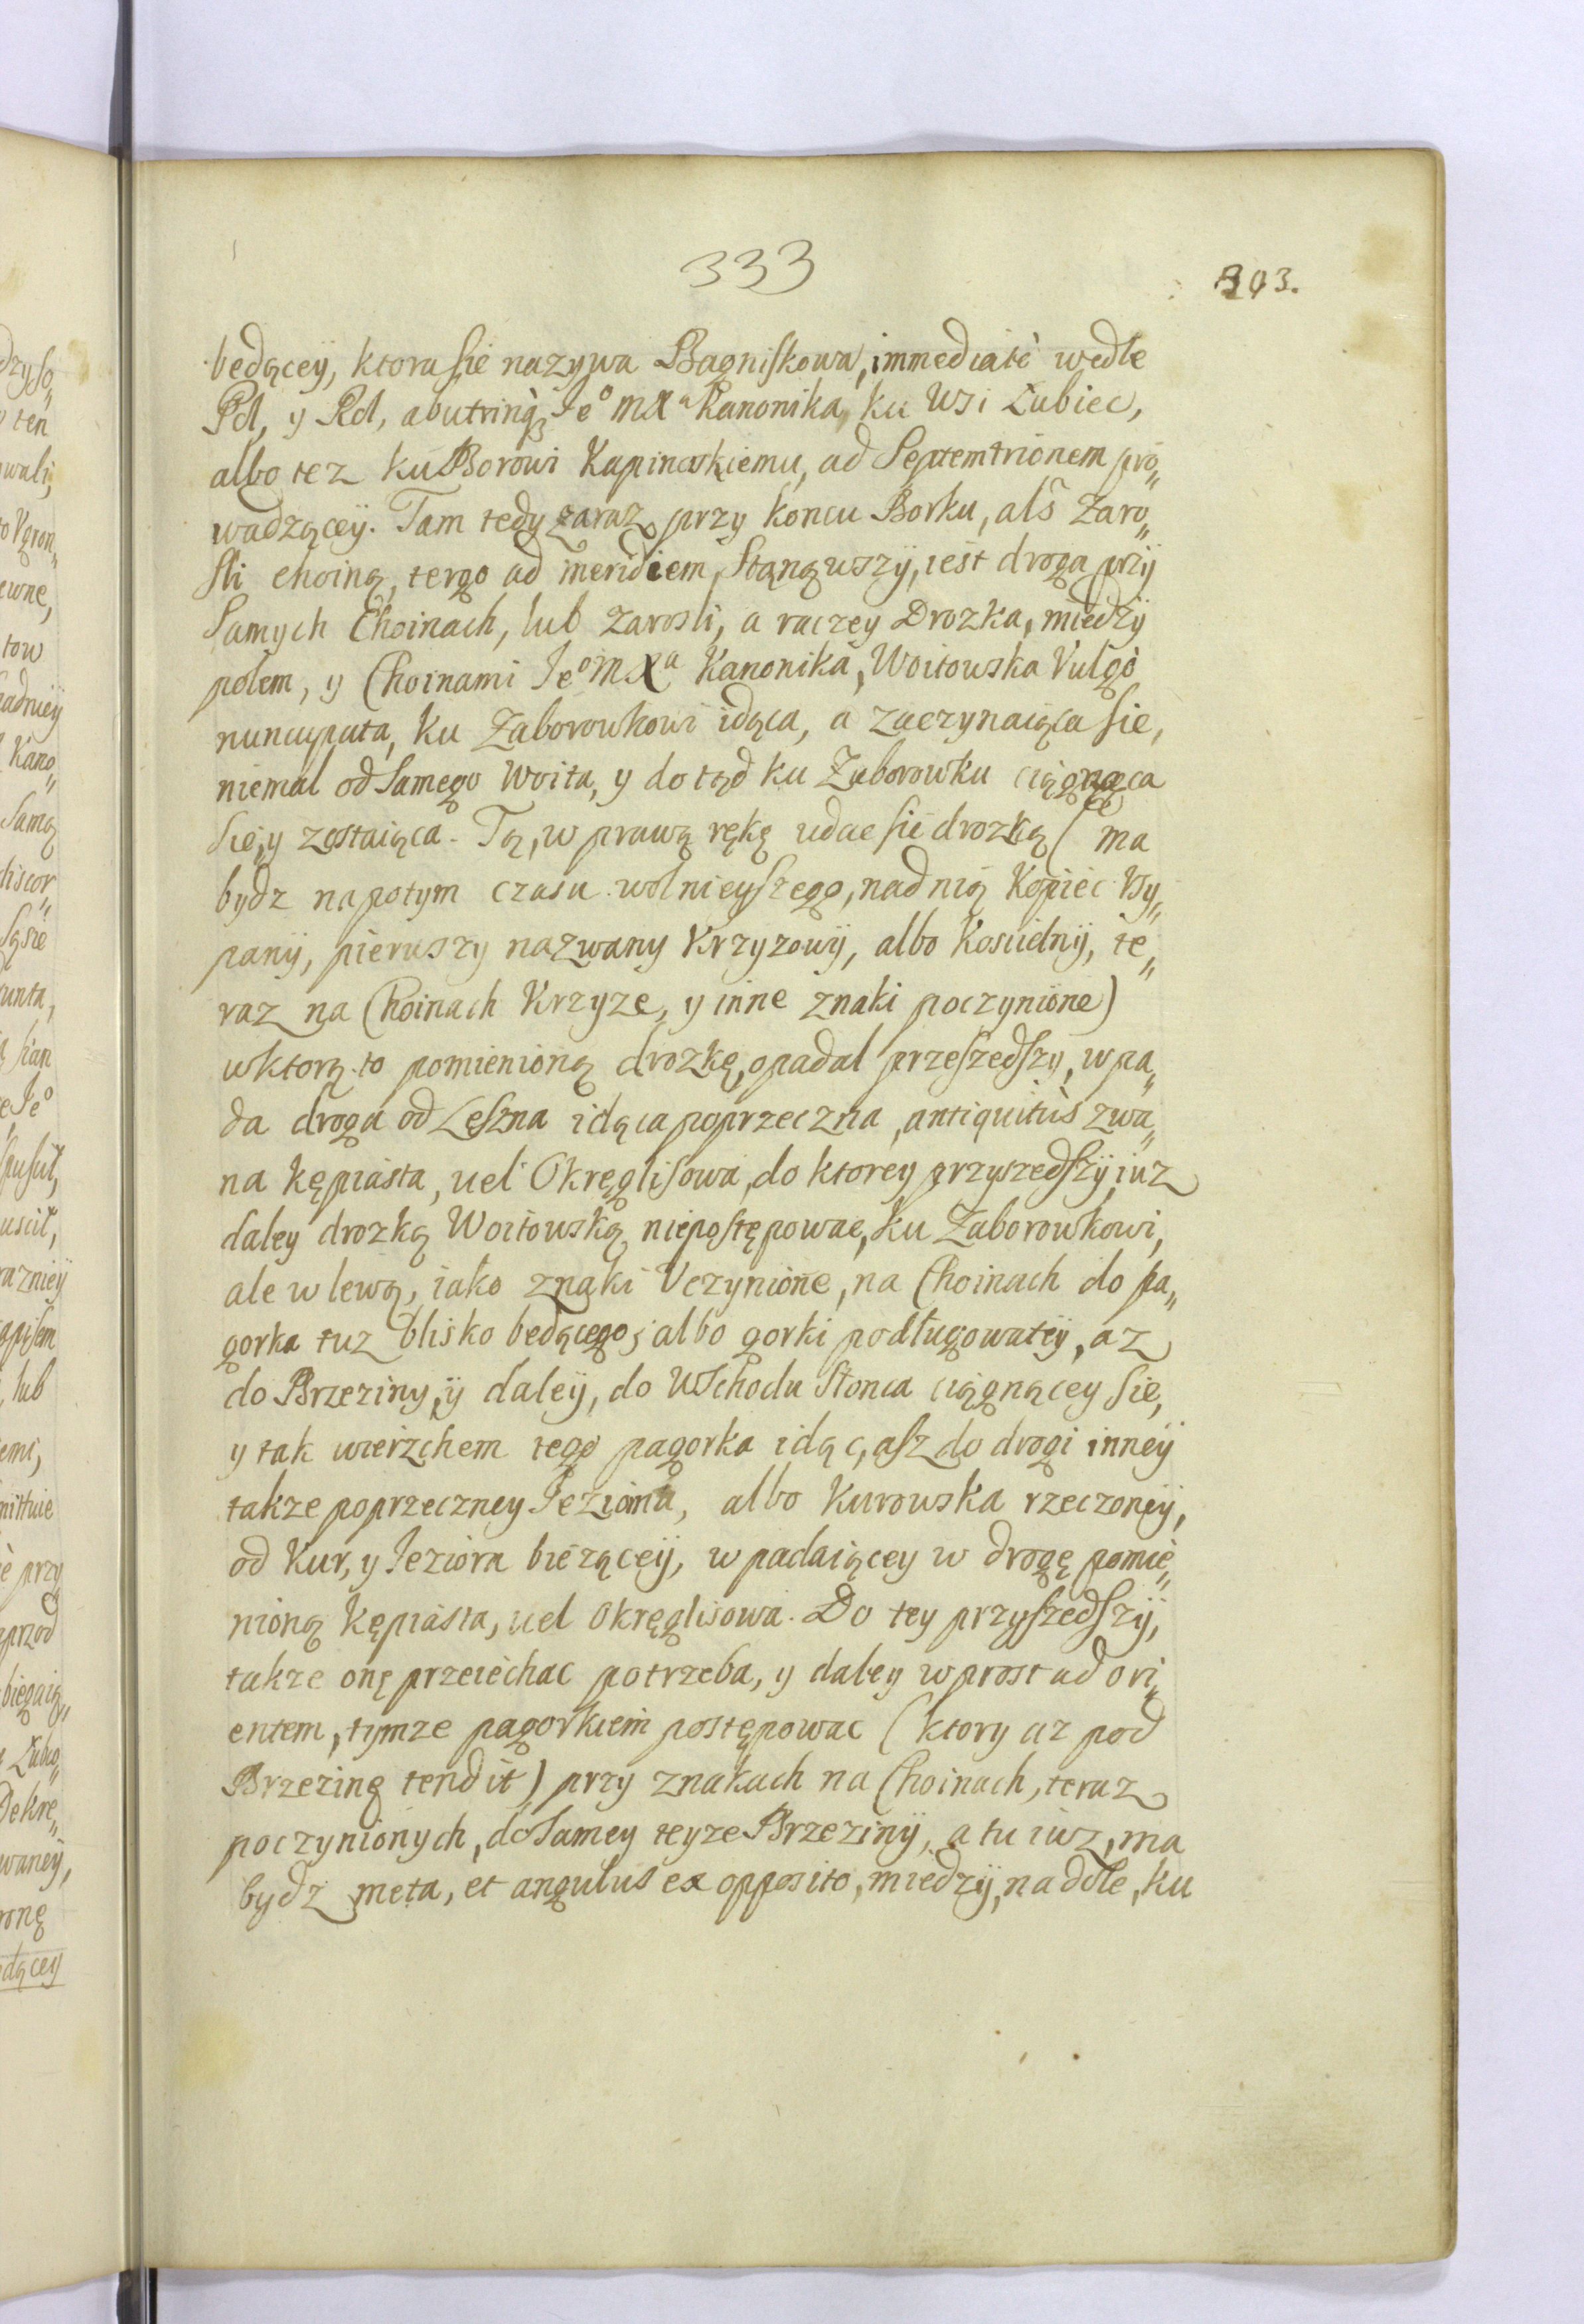 333
303.
bedącey, ktora sie nazywa Bagniskowa, immediatè wedle
Pol, y Rol, ab utrinq; Je° MX<sup>a</sup> Kanonika, ku Wsi Łubiec,
albo tez ku Borowi Kapinoskiemu, ad Septemtrionem pro„
wadzącey. Tam tedy zaraz przy koncu Borku, als Zaro„
sli choiną, tergo ad meridiem, Stanąwszy, iest droga przy
samych Choinach, lub zarosli, a raczey Drozka, miedzy
polem, y Choinami Je° M X<sup>a</sup> Kanonika, Woitowska Vulgò
nuncupata, ku Zaborowkowi idąca, a zaczynaiąca sie,
niemal od samego Woita, y dotąd ku Zaborowku ciągnąca
sie, y zostaiąca. Tą, w prawą rękę udac sie drozką (ma
bydz napotym czasu wolnieyszego, nad nią Kopiec Vsy„
pany, pierwszy nazwany Krzyzowy, albo Koscielny, te„
raz na Choinach Krzyze, y inne znaki poczynione)
w ktorą to pomienioną drozkę, opadal przeszedszy, wpa„
da droga od Leszna idąca poprzeczna, antiquitùs zwa„
na Kępiasta, uel Okręglisowa, do ktorey przyszedszy, iuz
daley drozką Woitowską, niepostępowac, ku Zaborowkowi,
ale w lewą, iako znaki Vczynione, na Choinach do pa„
gorka tuz blisko bedącego, albo gorki podługowatey, az
do Brzeziny, y daley, do Wschodu Słonca ciągnącey sie,
y tak wierzchem tego pagorka idąc, asz do drogi inney
takze poprzeczney Jeziorna, albo Kurowska rzeczoney,
od Kur, y Jeziora biezącey, wpadaiącey w drogę pomie„
nioną Kępiasta, uel Okręglisowa. Do tey przyszedszy,
takze onę przeiechac potrzeba, y daley wprost ad ori„
entem, tymze pagorkiem postępowac (ktory az pod
Brzezinę tendit) przy znakach na Choinach, teraz
poczynionych, do samey teyze Brzeziny, a tu iuz, ma
bydz meta, et angulus ex opposito, miedzy, na dole, ku